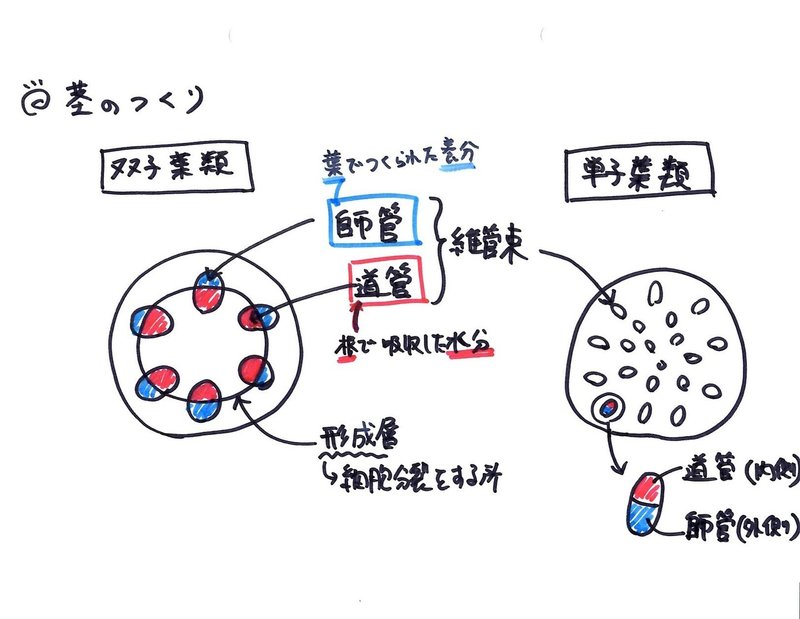 茎のつくり
双子葉類
葉でつくられた養分
単子葉類
師管
維管束
道管
根で吸収した水分
形成層
↳細胞分裂をする所
道管(内側)
師管(外側)